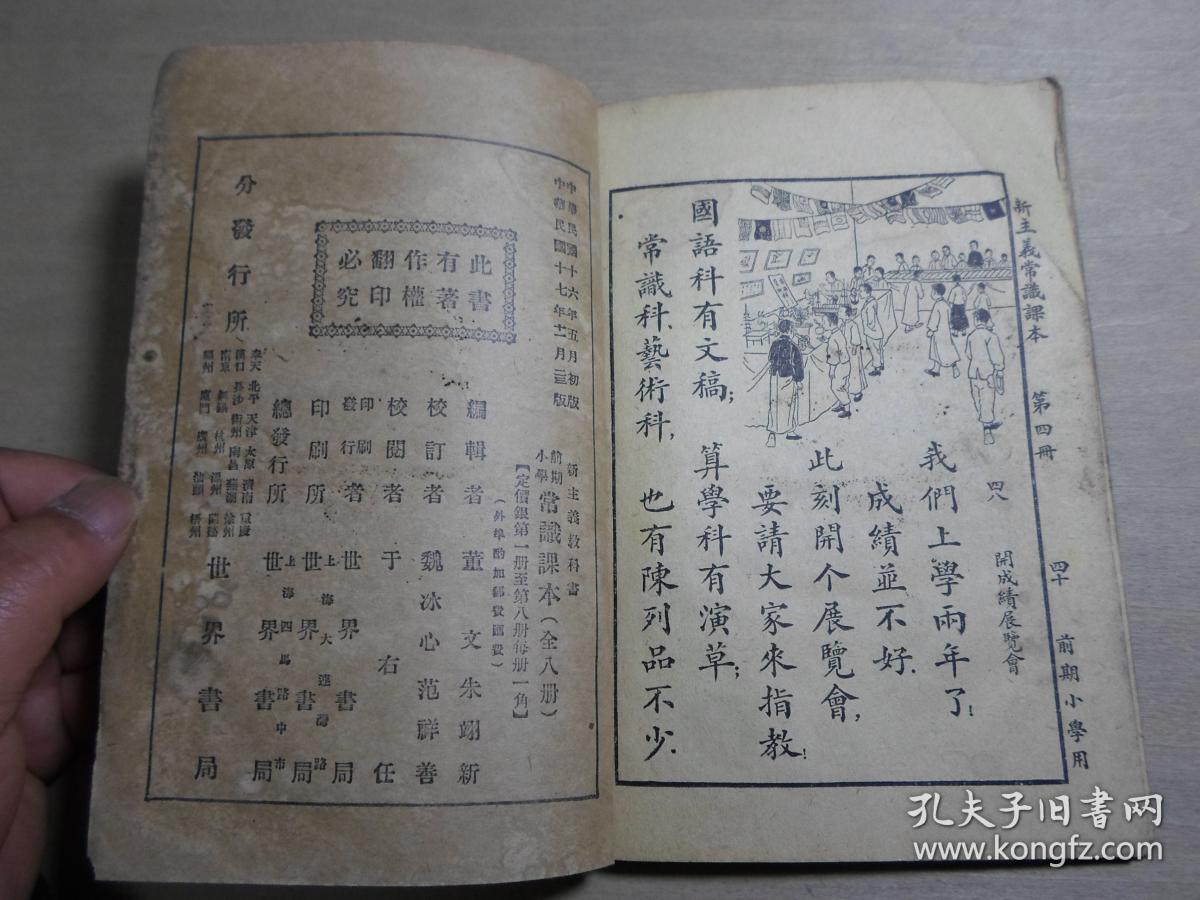 新主義常識課本 第四冊 四十 前期小學用
四八 開成績展覽會
我們上學兩年了;
成績並不好.
此刻開个展覽會,
要請大家來指教!
國語科有文稿; 算學科有演草;
常識科、藝術科, 也有陳列品不少.
中華民國十六年五月初版
中華民國十七年十一月
新主義教科書
前期小學 常識課本(全八冊)
【定價銀第一册至第八册每册一角】
(外埠酌加郵費匯費)
此書
有著
作權
翻印
必究
編輯者 董文 朱翊新
校訂者 魏冰心 范祥善
校閱者 于右任
印刷發行者 世界書局
印刷所 上海大連灣路 世界書局
總發行所 上海四馬路中市 世界書局
分發行所
奉天 北平 天津 太原 濟南 重慶
漢口 長沙 衡州 南昌 蕪湖 徐州
世界書局
孔夫子旧书网
www.kongfz.com